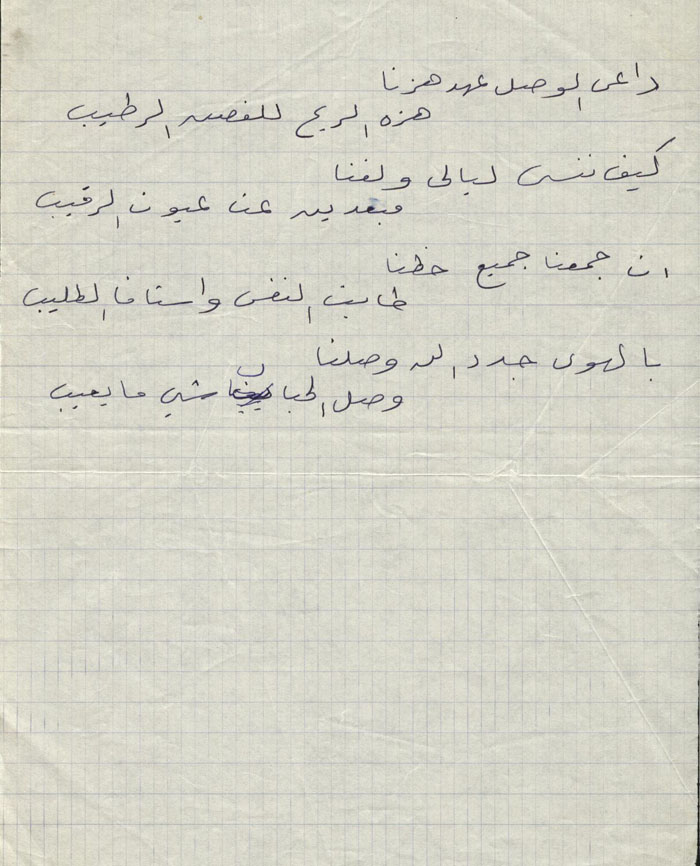 داعي الوصل عهد هزنا
هزه الريح للغصن الرطيب
كيف ننسى ليالي ولفنا
مبعدين عن عيون الرقيب
ان جمعنا جميع حظنا
طابت النفس واستافا لطليب
بالهوى جدد الله وصلنا
وصل الحبايب شي ما يعيب